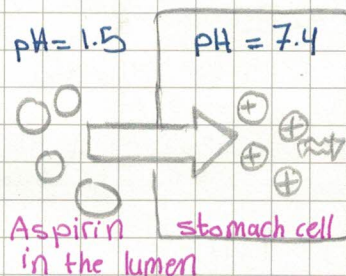 pH = 1.5
pH = 7.4
+
+
+
+
Aspirin
in the lumen
stomach cell